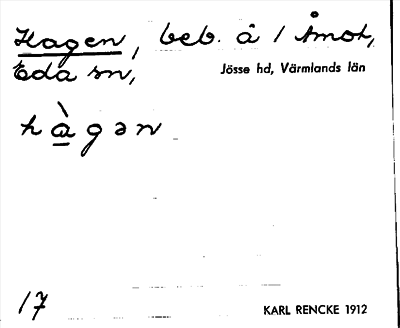 Hagen, beb. å 1 Åmot,
Eda sn,
Jösse hd, Värmlands län
hàgən
17
KARL RENCKE 1912